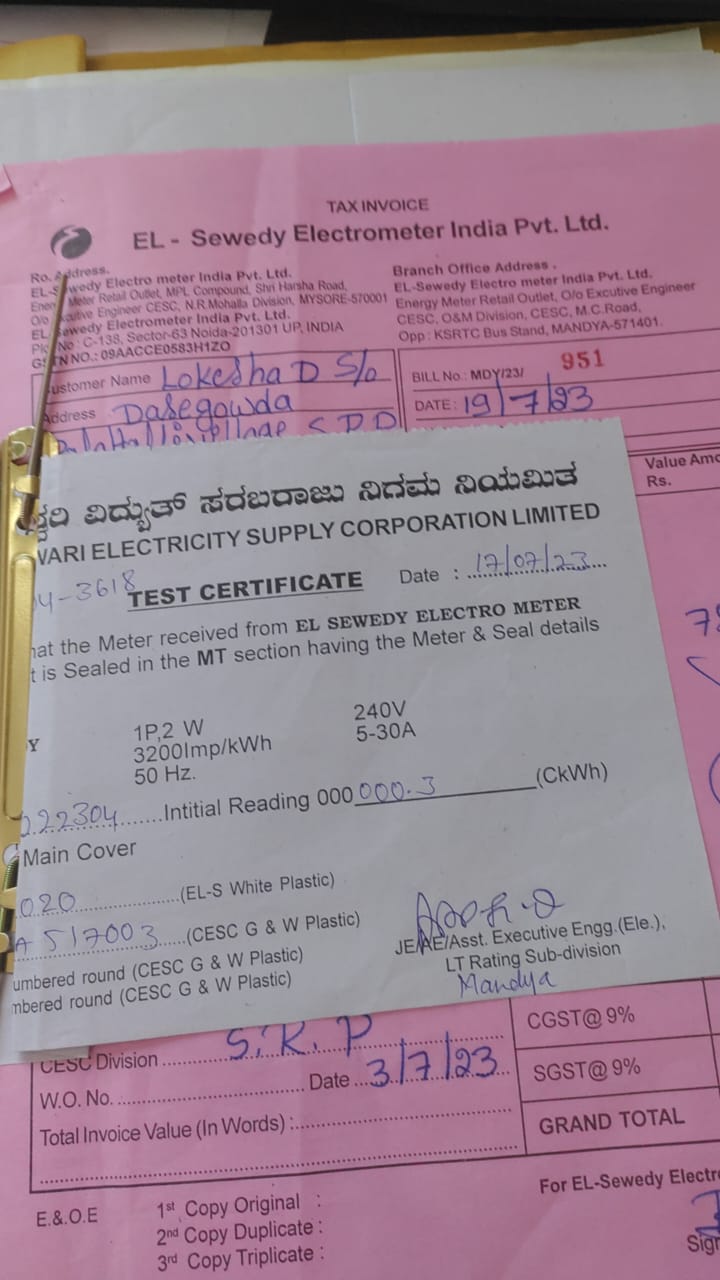 TAX INVOICE
EL - Sewedy Electrometer India Pvt. Ltd.
Ro. Address.
EL-Sewedy Electro meter India Pvt. Ltd.
Energy Meter Retail Outlet, MPL Compound, Shri Harsha Road,
O/o Excutive Engineer CESC, N.R.Mohalla Division, MYSORE-570001
EL Sewedy Electrometer India Pvt. Ltd.
No : C-138, Sector-63 Noida-201301 UP, INDIA
GSTN NO.: 09AACCE0583H1ZO
Branch Office Address .
EL-Sewedy Electro meter India Pvt. Ltd.
Energy Meter Retail Outlet, O/o Excutive Engineer
CESC, O&M Division, CESC, M.C.Road,
Opp : KSRTC Bus Stand, MANDYA-571401.
Customer Name Lokesha D S/o
Address Dasegowda
BILL No.: MDY/23/ 951
DATE : 19/7/23
Value Amo
Rs.
ವಿದ್ಯುತ್ ಸರಬರಾಜು ನಿಗಮ ನಿಯಮಿತ
VARI ELECTRICITY SUPPLY CORPORATION LIMITED
04-3618
TEST CERTIFICATE Date : 17/07/23
hat the Meter received from EL SEWEDY ELECTRO METER
t is Sealed in the MT section having the Meter & Seal details
Y 1P,2 W 240V
3200Imp/kWh 5-30A
50 Hz.
222304 Intitial Reading 000 000.3 (CkWh)
Main Cover
020 (EL-S White Plastic)
A 517003 (CESC G & W Plastic)
umbered round (CESC G & W Plastic)
mbered round (CESC G & W Plastic)
JE/AE/Asst. Executive Engg.(Ele.),
LT Rating Sub-division
Mandya
CESC Division S.R.P
W.O. No. Date 3/7/23
Total Invoice Value (In Words) :
CGST@ 9%
SGST@ 9%
GRAND TOTAL
E.& O.E
1st Copy Original :
2nd Copy Duplicate :
3rd Copy Triplicate :
For EL-Sewedy Electr
Sign